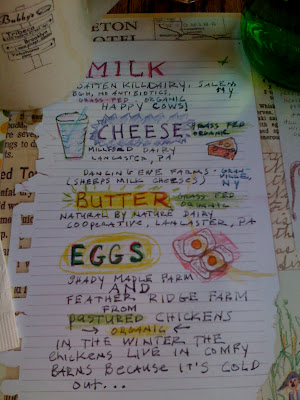 Bubby's
ETON
HOTEL
WYOMING
MILK
BATTEN KILL DAIRY, SALEM
NY
NO ANTIBIOTICS,
GRASS FED, ORGANIC
HAPPY COWS!
CHEESE GRASS FED
ORGANIC
MILFORD DAIRY
LANCASTER, PA
DANCING EWE FARMS - GRAN
VILLE,
NY
(SHEEPS MILK CHEESES)
BUTTER GRASS FED
ORGANIC
NATURAL BY NATURE DAIRY
COOPERATIVE, LANCASTER, PA
EGGS
SHADY MAPLE FARM
AND
FEATHER RIDGE FARM
FROM
PASTURED CHICKENS
ORGANIC
IN THE WINTER THE
chickens LIVE IN COMFY
BARNS BECAUSE IT'S COLD
out...